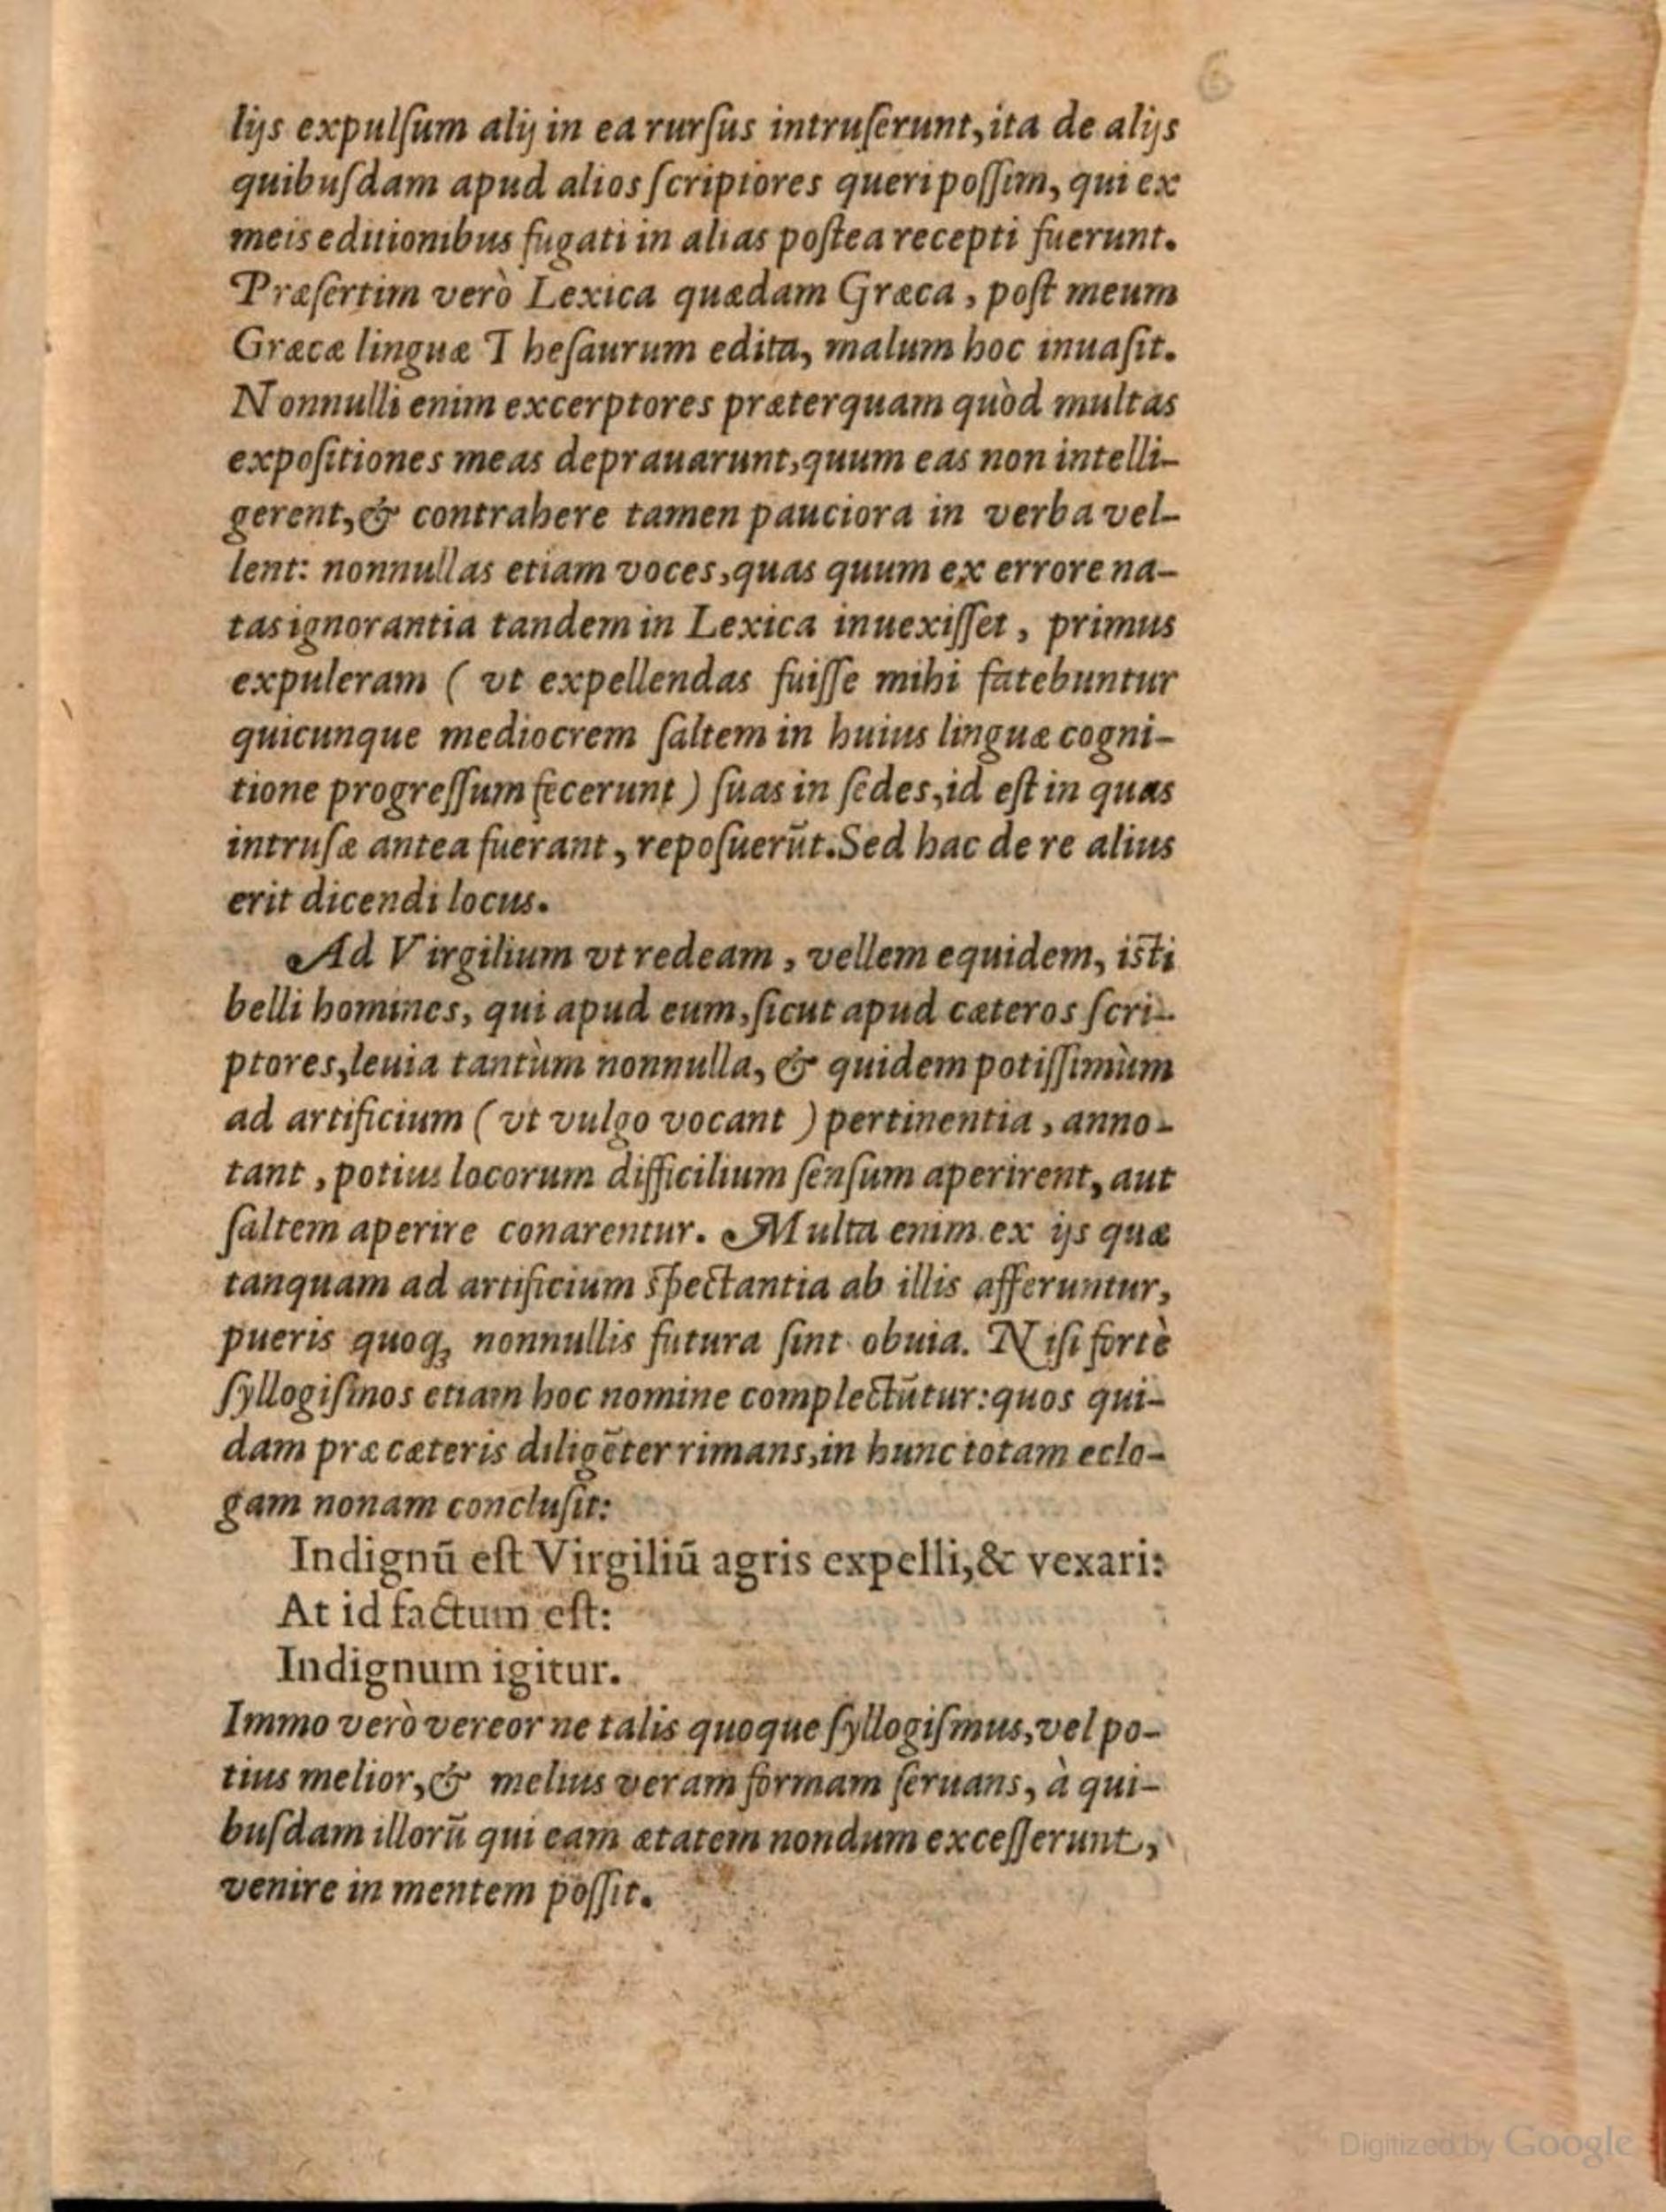 6
lijs expulſum alij in ea rurſus intruſerunt, ita de alijs
quibuſdam apud alios ſcriptores queri poſſim, qui ex
meis editionibus fugati in alias poſtea recepti fuerunt.
Præſertim verò Lexica quædam Græca, poſt meum
Græcæ linguæ Theſaurum edita, malum hoc inuaſit.
Nonnulli enim excerptores præterquam quòd multas
expoſitiones meas deprauarunt, quum eas non intelli-
gerent, & contrahere tamen pauciora in verba vel-
lent: nonnullas etiam voces, quas quum ex errore na-
tas ignorantia tandem in Lexica inuexiſſet, primus
expuleram ( vt expellendas fuiſſe mihi fatebuntur
quicunque mediocrem ſaltem in huius linguæ cogni-
tione progreſſum fecerunt ) ſuas in ſedes, id eſt in quas
intruſæ antea fuerant, repoſuerūt. Sed hac de re alius
erit dicendi locus.
Ad Virgilium vt redeam, vellem equidem, iſti
belli homines, qui apud eum, ſicut apud cæteros ſcri-
ptores, leuia tantùm nonnulla, & quidem potiſſimùm
ad artificium ( vt vulgo vocant ) pertinentia, anno-
tant, potius locorum difficilium ſenſum aperirent, aut
ſaltem aperire conarentur. Multa enim ex ijs quæ
tanquam ad artificium ſpectantia ab illis afferuntur,
pueris quoq; nonnullis futura ſint obuia. Niſi fortè
ſyllogiſmos etiam hoc nomine complectūtur: quos qui-
dam præ cæteris diligēter rimans, in hunc totam eclo-
gam nonam concluſit:
Indignū eſt Virgiliū agris expelli, & vexari:
At id factum eſt:
Indignum igitur.
Immo verò vereor ne talis quoque ſyllogiſmus, vel po-
tius melior, & melius veram formam ſeruans, à qui-
buſdam illorū qui eam ætatem nondum exceſſerunt,
venire in mentem poſſit.
Digitized by Google